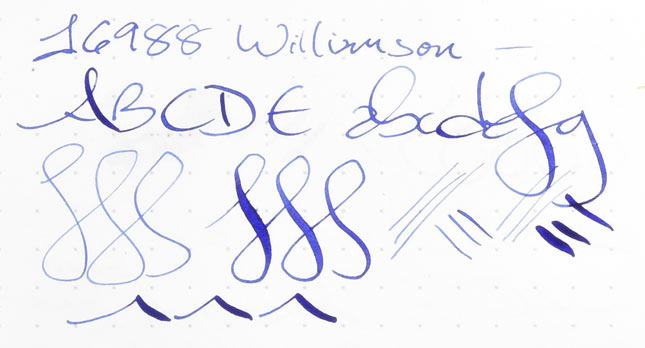 16988 Williamson –
ABCDE abcdefg